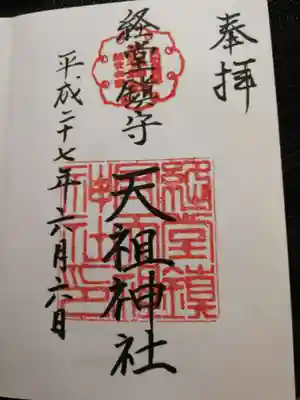 奉拝
経堂鎮守
天祖神社
平成二十七年六月六日